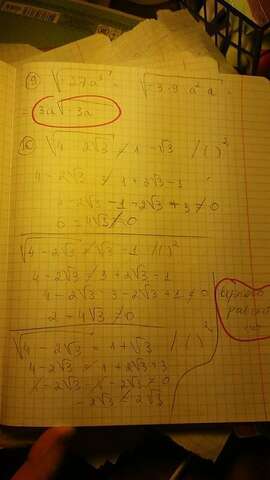 ⑨ √-27a³ = √-3·9·a²·a =
= 3a√-3a
⑩ √4-2√3 ≠ 1-√3 /( )²
4-2√3 ≠ 1+2√3-3
4-2√3-1-2√3+3≠0
6-4√3≠0
√4-2√3 ≠ √3-1 /( )²
4-2√3 ≠ 3+2√3-1
4-2√3-3-2√3+1≠0
2-4√3≠0
√4-2√3 = 1+√3 /( )²
4-2√3 = 1+2√3+3
4-2√3-4-2√3≠0
-2√3≠2√3